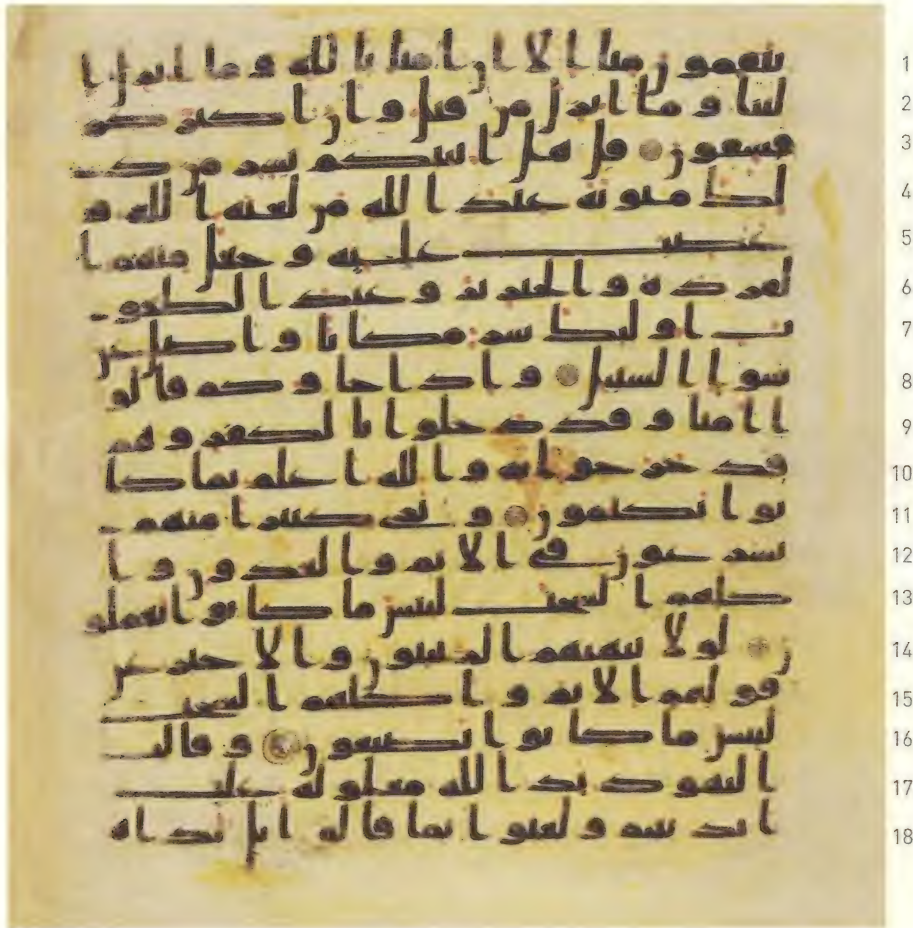 تنقمون منا الا ان امنا بالله وما انزل ا 1
لينا وما انزل من قبل وان اكثركم 2
فسقون قل هل انبئكم بشر من ذ 3
لك مثوبة عند الله من لعنه الله و 4
غضب عليه وجعل منهم ا 5
لقردة والخنزير وعبد الطغو 6
ت اولئك شر مكانا واضل عن 7
سوا السبيل واذا جاوكم قالو 8
ا امنا وقد دخلوا بالكفر وهم 9
قد خرجوا به والله اعلم بما كا 10
نوا يكتمون وترى كثيرا منهم 11
يسرعون في الاثم والعدون وا 12
كلهم السحت لبئس ما كانوا يعملو 13
ن لولا ينهيهم الربنيون والاحبر عن 14
قولهم الاثم واكلهم السحت 15
لبئس ما كانوا يصنعون وقالت 16
اليهود يد الله مغلولة غلت 17
ايديهم ولعنوا بما قالوا بل يداه 18